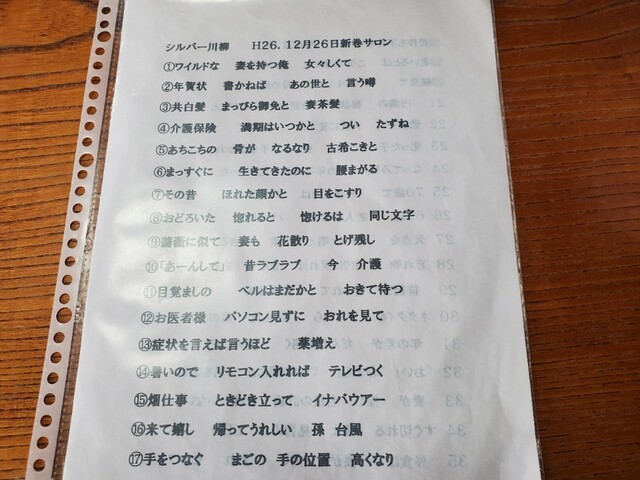 シルバー川柳　H26.12月26日新巻サロン
①ワイルドな　妻を持つ俺　女々しくて
②年賀状　書かねば　あの世と　言う噂
③共白髪　まっぴら御免と　妻茶髪
④介護保険　満期はいつかと　つい　たずね
⑤あちこちの　骨が　なるなり　古希こきと
⑥まっすぐに　生きてきたのに　腰まがる
⑦その昔　ほれた顔かと　目をこすり
⑧おどろいた　惚れると　惚けるは　同じ文字
⑨薔薇に似て　妻も　花散り　とげ残し
⑩「あーんして」　昔ラブラブ　今　介護
⑪目覚ましの　ベルはまだかと　おきて待つ
⑫お医者様　パソコン見ずに　おれを見て
⑬症状を言えば言うほど　薬増え
⑭暑いので　リモコン入れれば　テレビつく
⑮畑仕事　ときどき立って　イナバウアー
⑯来て嬉し　帰ってうれしい　孫　台風
⑰手をつなぐ　まごの　手の位置　高くなり